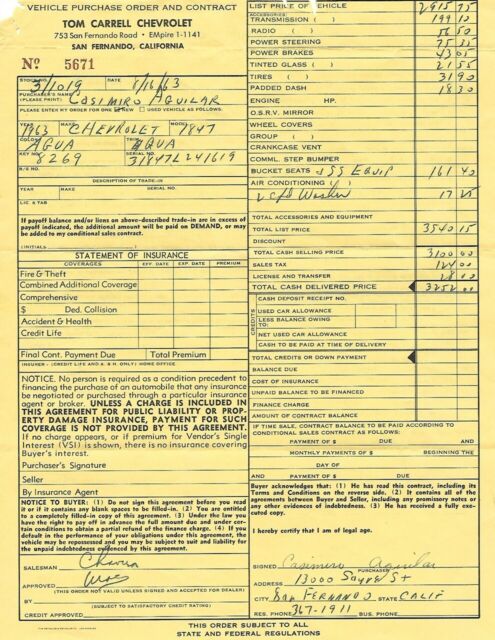 VEHICLE PURCHASE ORDER AND CONTRACT
TOM CARRELL CHEVROLET
753 San Fernando Road • EMpire 1-1141
SAN FERNANDO, CALIFORNIA
Nº 5671
STOCK NO. 3/1019 DATE 8/16/63
PURCHASER'S NAME (PLEASE PRINT) CASIMIRO AGUILAR
PLEASE ENTER MY ORDER FOR ONE NEW USED VEHICLE AS FOLLOWS.
YEAR 1963 MAKE CHEVROLET MODEL 1847
COLOR AQUA TRIM AQUA
KEY NO. 8269 SERIAL NO. 31847L241619
R/S NO.
DESCRIPTION OF TRADE-IN
YEAR MAKE SERIAL NO.
LIC. & TAB
If payoff balance and/or liens on above-described trade-in are in excess of
payoff indicated, the additional amount will be paid on DEMAND, or may
be added to my conditional sales contract.
(INITIALS )
STATEMENT OF INSURANCE
COVERAGES EFF. DATE EXP. DATE PREMIUM
Fire & Theft
Combined Additional Coverage
Comprehensive
$ Ded. Collision
Accident & Health
Credit Life
Final Cont. Payment Due Total Premium
INSURER - (CREDIT LIFE AND A. & H. ONLY) HOME OFFICE
NOTICE. No person is required as a condition precedent to
financing the purchase of an automobile that any insurance
be negotiated or purchased through a particular insurance
agent or broker. UNLESS A CHARGE IS INCLUDED IN
THIS AGREEMENT FOR PUBLIC LIABILITY OR PROP-
ERTY DAMAGE INSURANCE, PAYMENT FOR SUCH
COVERAGE IS NOT PROVIDED BY THIS AGREEMENT.
If no charge appears, or if premium for Vendor's Single
Interest (VSI) is shown, there is no insurance covering
Buyer's interest.
Purchaser's Signature
Seller
By Insurance Agent
NOTICE TO BUYER: (1) Do not sign this agreement before you read
it or if it contains any blank spaces to be filled. (2) You are entitled
to a completely filled-in copy of this agreement. (3) Under the law you
have the right to pay off in advance the full amount due and under
certain conditions to obtain a partial refund of the finance charge. (4) If you
default in the performance of your obligations under this agreement, the
vehicle may be repossessed and you may be subject to suit and liability for
the unpaid indebtedness evidenced by this agreement.
SALESMAN
APPROVED
(THIS ORDER NOT VALID UNLESS SIGNED AND ACCEPTED BY DEALER)
BY
(SUBJECT TO SATISFACTORY CREDIT RATING)
CREDIT APPROVED
LIST PRICE OF VEHICLE 2915 75
ACCESSORIES:
TRANSMISSION ( ) 199 10
RADIO ( ) 56 50
POWER STEERING 75 35
POWER BRAKES 43 05
TINTED GLASS ( ) 21 55
TIRES ( ) 31 90
PADDED DASH 18 30
ENGINE HP.
O.S.R.V. MIRROR
WHEEL COVERS
GROUP ( )
CRANKCASE VENT
COMML. STEP BUMPER
BUCKET SEATS SS EQUIP 161 40
AIR CONDITIONING ( )
Washer 17 25
TOTAL ACCESSORIES AND EQUIPMENT
TOTAL LIST PRICE 3540 15
DISCOUNT
TOTAL CASH SELLING PRICE 3100 00
SALES TAX 124 00
LICENSE AND TRANSFER 28 00
TOTAL CASH DELIVERED PRICE 3252 00
CREDITS
CASH DEPOSIT RECEIPT NO.
USED CAR ALLOWANCE
LESS BALANCE OWING TO:
NET USED CAR ALLOWANCE
CASH TO BE PAID AT TIME OF DELIVERY
TOTAL CREDITS OR DOWN PAYMENT
BALANCE DUE
COST OF INSURANCE
UNPAID BALANCE TO BE FINANCED
FINANCE CHARGE
AMOUNT OF CONTRACT BALANCE
IF TIME SALE, CONTRACT BALANCE TO BE PAID ACCORDING TO
CONDITIONAL SALES CONTRACT AS FOLLOWS:
PAYMENT OF $ DUE AND
MONTHLY PAYMENTS OF $ BEGINNING THE
DAY OF AND
PAYMENT OF $ DUE
Buyer acknowledges that: (1) He has read this contract, including its
Terms and Conditions on the reverse side. (2) It contains all of the
agreements between Buyer and Seller, including any promissory notes or
any other evidences of indebtedness. (3) He has received a fully exe-
cuted copy.
I hereby certify that I am of legal age.
SIGNED Casimiro Aguilar
PURCHASER
ADDRESS 13000 Sayre St
CITY San Fernando STATE CALIF
RES. PHONE 367-1911 BUS. PHONE
THIS ORDER SUBJECT TO ALL
STATE AND FEDERAL REGULATIONS